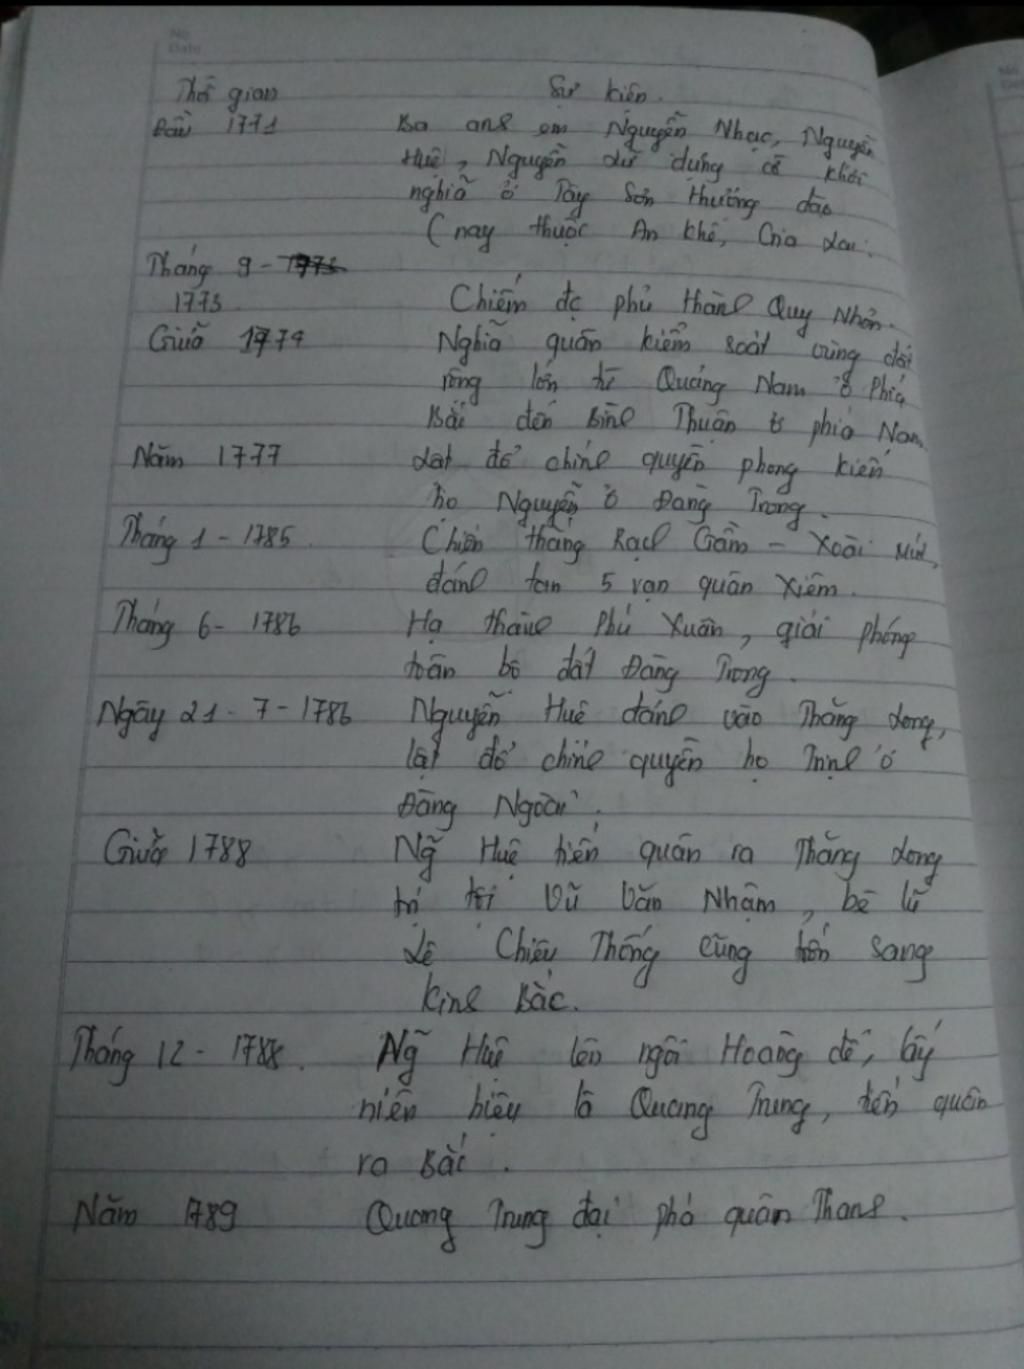 No
Date
Thời gian Sự kiện.
Đầu 1771 Ba anh em Nguyễn Nhạc, Nguyễn
Huệ, Nguyễn Lữ dựng cờ khởi
nghĩa ở Tây Sơn thượng đạo
(nay thuộc An Khê, Gia Lai.
Tháng 9 -
1773 Chiếm đc phủ thành Quy Nhơn.
Giữa 1774 Nghĩa quân kiểm soát vùng đất
rộng lớn từ Quảng Nam ở phía
Bắc đến Bình Thuận ở phía Nam
Năm 1777 Lật đổ chính quyền phong kiến
họ Nguyễn ở Đàng Trong.
Tháng 1 - 1785 Chiến thắng Rạch Gầm - Xoài Mút,
đánh tan 5 vạn quân Xiêm.
Tháng 6 - 1786 Hạ thành Phú Xuân, giải phóng
toàn bộ đất Đàng Trong.
Ngày 21 - 7 - 1786 Nguyễn Huệ đánh vào Thăng Long,
lật đổ chính quyền họ Trịnh ở
Đàng Ngoài.
Giữa 1788 Ng̃ Huệ tiến quân ra Thăng Long
trị tội Vũ Văn Nhậm, bè lũ
Lê Chiêu Thống cũng trốn sang
Kinh Bắc.
Tháng 12 - 1788. Ng̃ Huệ lên ngôi Hoàng đế, lấy
niên hiệu là Quang Trung, tiến quân
ra Bắc.
Năm 1789 Quang Trung đại phá quân Thanh.